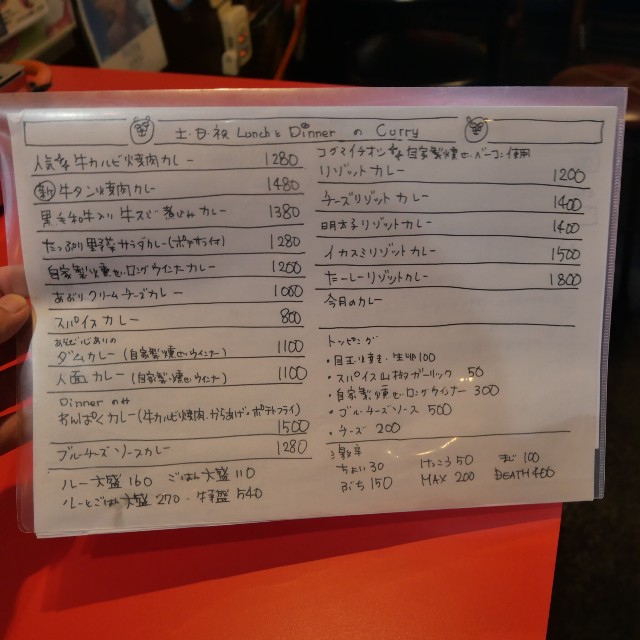 土.日.祝 Lunchと Dinner のCurry
人気No.1 牛カルビ焼肉カレー 1280
新 牛タン焼肉カレー 1480
黒毛和牛入り 牛スジ煮込みカレー 1380
たっぷり野菜サラダカレー(ポテサラ付) 1280
自家製燻せいロングウインナーカレー 1200
あぶりクリームチーズカレー 1000
スパイスカレー 800
あそび心ありの
ダムカレー (自家製燻せいウインナー) 1100
人面カレー (自家製燻せいウインナー) 1100
Dinnerのみ
わんぱくカレー(牛カルビ焼肉.からあげ.ポテトフライ)
1500
ブルーチーズソースカレー 1280
ルー大盛160 ごはん大盛110
ルーとごはん大盛270・牛増盛540
コグマイチオシ 自家製燻せいベーコン使用
リゾットカレー 1200
チーズリゾットカレー 1400
明太子リゾットカレー 1400
イカスミリゾットカレー 1500
たーしーリゾットカレー 1800
今月のカレー
トッピング
・目玉り焼き・生卵100
・スパイス山椒ガーリック 50
・自家製燻せいロングウインナー 300
・ブルーチーズソース 500
・チーズ 200
激辛
ちょい30 けっこう50 まじ100
ぶち150 MAX 200 DEATH400